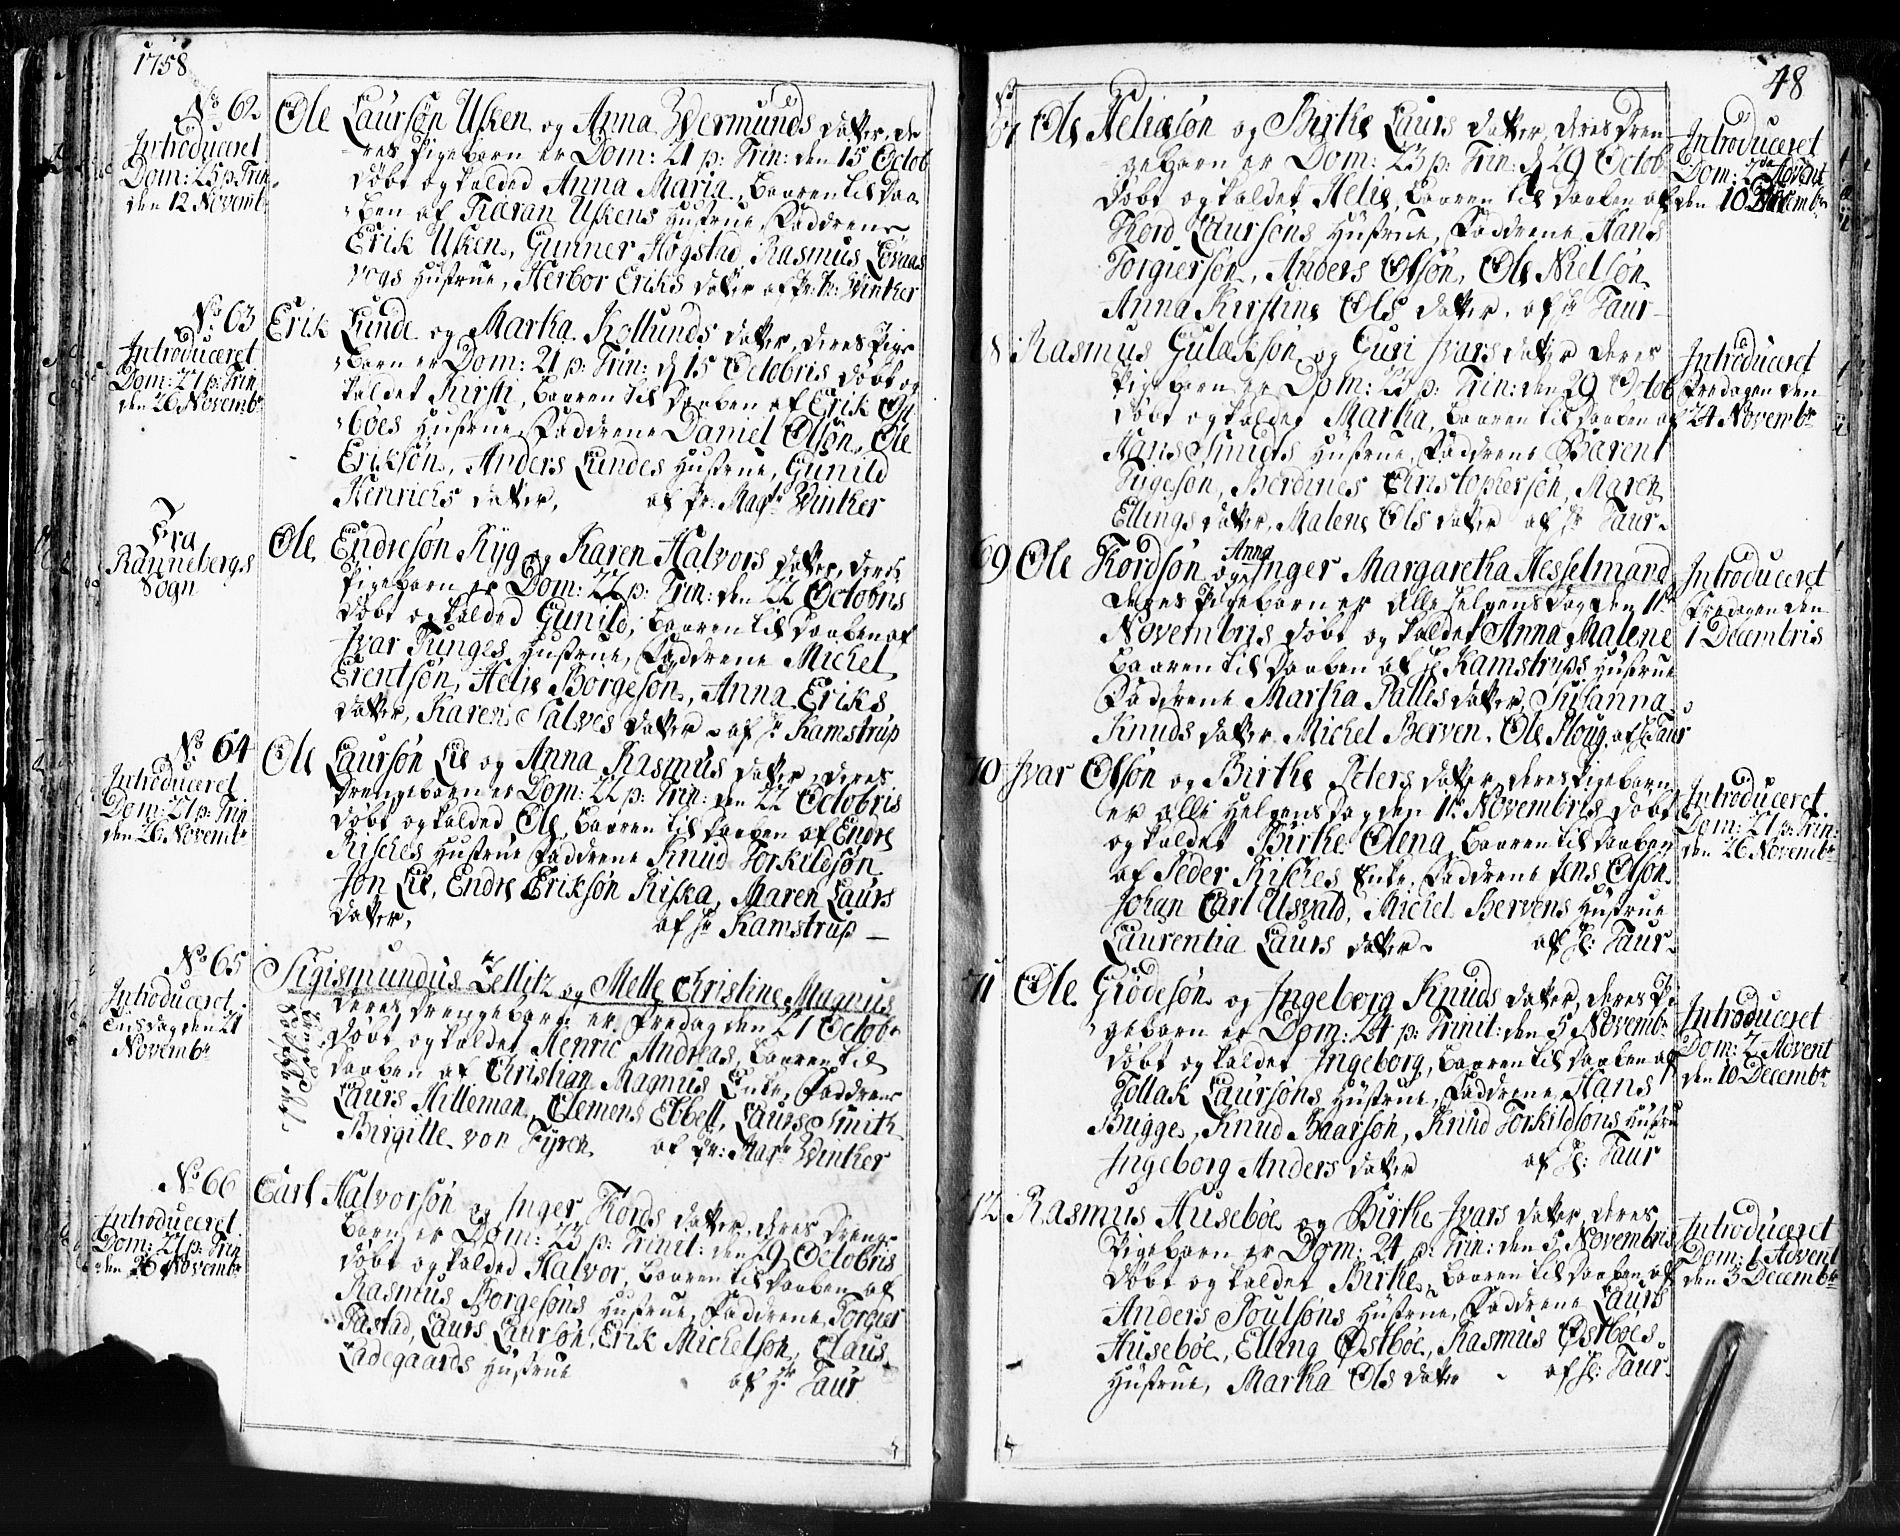 1758
No 62
Introduceret
Dom: 25 p. Trin
den 12 Novemb.
Ole Laursøn Usken og Anna Wermunds daater, de
res Pigebarn er Dom: 21 p: Trin: den 15 Octob
døbt og kalded Anna Maria, baaren til Daa
ben af Tiæran Uskens Hustrue, Faddrene
Erik Usken, Gunner Hogstad, Rasmus Lovaas
vogs Hustrue, Herbor Eriks daater af Pr: h: Winter
No 63
Introduceret
Dom: 27 p: Trin
den 26 Novembr
Erik Lunde og Martha Kollunds daater, deres Pige
barn er Dom: 21 p: Trin: d 15 Octobris døbt og
kaldet Kirsti, baaren til Daaben af Erik
böes Hustrue, Faddrene Daniel Olsøn, Ole
Eriksøn, Anders Lundes Hustrue, Gunild
Henrichs daater, af Pr: Magr Winther
Fra
Rannebergs
Sogn
Ole Endresøn Ryg og Karen Halvors daater, deres
Pigebarn er Dom: 22 p: Trin: den 22 Octobris
døbt og kalded Gunild, baaren til Daaben af
Ivar Tunges Hustrue, Faddrene Michel
Erentsøn, Helie Borgesøn, Anna Eriks
daater, Karen Salves daater af Hr Kamstrup
No 64
Introduceret
Dom: 27 p: Trin
den 26 Novembr
Ole Laursøn Lie og Anna Rasmus daater, deres
Drengebarn er Dom: 22 p: Trin: den 22 Octobris
døbt og kalded Ole, baaren til Daaben af Endre
Risches Hustrue Faddrene Knud Torkildsøn
Jon Lie, Endre Eriksøn Riska, Maren Laurs
daater, af Hr Kamstrup
No 65
Introduceret
Tiisdag den 21
Novembr
Sigismundus Zellitz og Mette Christine Magnus
deres Drengebarn er Fredag den 27 Octobr
døbt og kaldet Henric Andreas, baaren til
Daaben af Christian Magnus Enke, Faddrene
Laurs Hilleman, Clemens Ebbell, Laurs Smith
Birgitte von Fyren af Pr: Magr Winther
No 66
Introduceret
Dom: 27 p: Trin
den 26 Novembr
Carl Halvorsøn og Inger Tords daater, deres Drenge
barn er Dom: 23 p: Trinit: den 29 Octobris
døbt og kalded Halvor, baaren til Daaben af
Rasmus Borgesøns Hustrue, Faddrene, Torgier
Tastad, Laurs Laursøn, Erik Michelsøn, Claus
Ladegaards Hustrue af Hr Taur
48
Ole Heliesøn og Birthe Laurs daater, deres Dren
gebarn er Dom: 23 p: Trin: d 29 Octob
døbt og kaldet Helie, baaren til Daaben af
Thord Laursøns Hustrue, Faddrene Hans
Torgiersøn, Anders Olsøn, Ole Nielsøn
Anna Kirstine Ols daater, af Hr Taur
Introduceret
Dom: 2da Advent
den 10 Decembr
Rasmus Gulaksøn og Guri Ivars daater deres
Pigebarn er Dom: 23 p: Trin: den 29 Octob
døbt og kaldet Martha, baaren til Daaben af
Hans Smidts Hustrue, Faddrene Barent
Tugesøn, Berdines Christophersøn, Maren
Ellings daater, Malene Ols daater af Hr Taur
Introduceret
Fredagen den
24 Novembr
69 Ole Tordsøn og Anna Inger Margaretha Hesselmand
deres Pigebarn er Alle Helgens Dag den 1te
Novembris døbt og kaldet Anna Malene
baaren til Daaben af Hr Kamstrups Hustrue
Faddrene Martha Palles daater, Susanna
Knuds daater, Michel Berven, Ole Ploug af Hr Taur
Introduceret
Fredagen den
1 Decembris
70 Ivar Olsøn og Birthe Peters daater, deres Pigebarn
er Alle Helgens dag den 1te Novembris døbt
og kaldet Birthe Olena, baaren til Daaben
af Peder Risches Enke, Faddrene Jens Olsøn
Johan Carl Usvald, Michel Bervens Hustrue
Laurentia Laurs daater af Hr: Taur
Introduceret
Dom: 27 p: Trin:
den 26 Novembr
71 Ole Giödesøn og Ingeborg Knuds daater, deres Pi
gebarn er Dom: 24 p: Trinit: den 5 Novembr
døbt og kaldet Ingeborg, baaren til Daaben af
Tollak Laursøns Hustrue, Faddrene Hans
Bugge, Knud Baarsøn, Knud Torkildsøns Hustru
Ingeborg Anders daater af Hr: Taur
Introduceret
Dom: 2 Advent
den 10 Decembr
72 Rasmus Huseböe og Birthe Ivars daater, deres
Pigebarn er Dom: 24 p: Trin: den 5 Novembris
døbt og kaldet Birthe, baaren til Daaben af
Anders Poulsøns Hustrue, Faddrene Laurs
Huseböe, Elling Østböe, Rasmus Østböes
Hustrue, Martha Ols daater af Hr: Taur
Introduceret
Dom: 1 Advent
den 3 Decembr